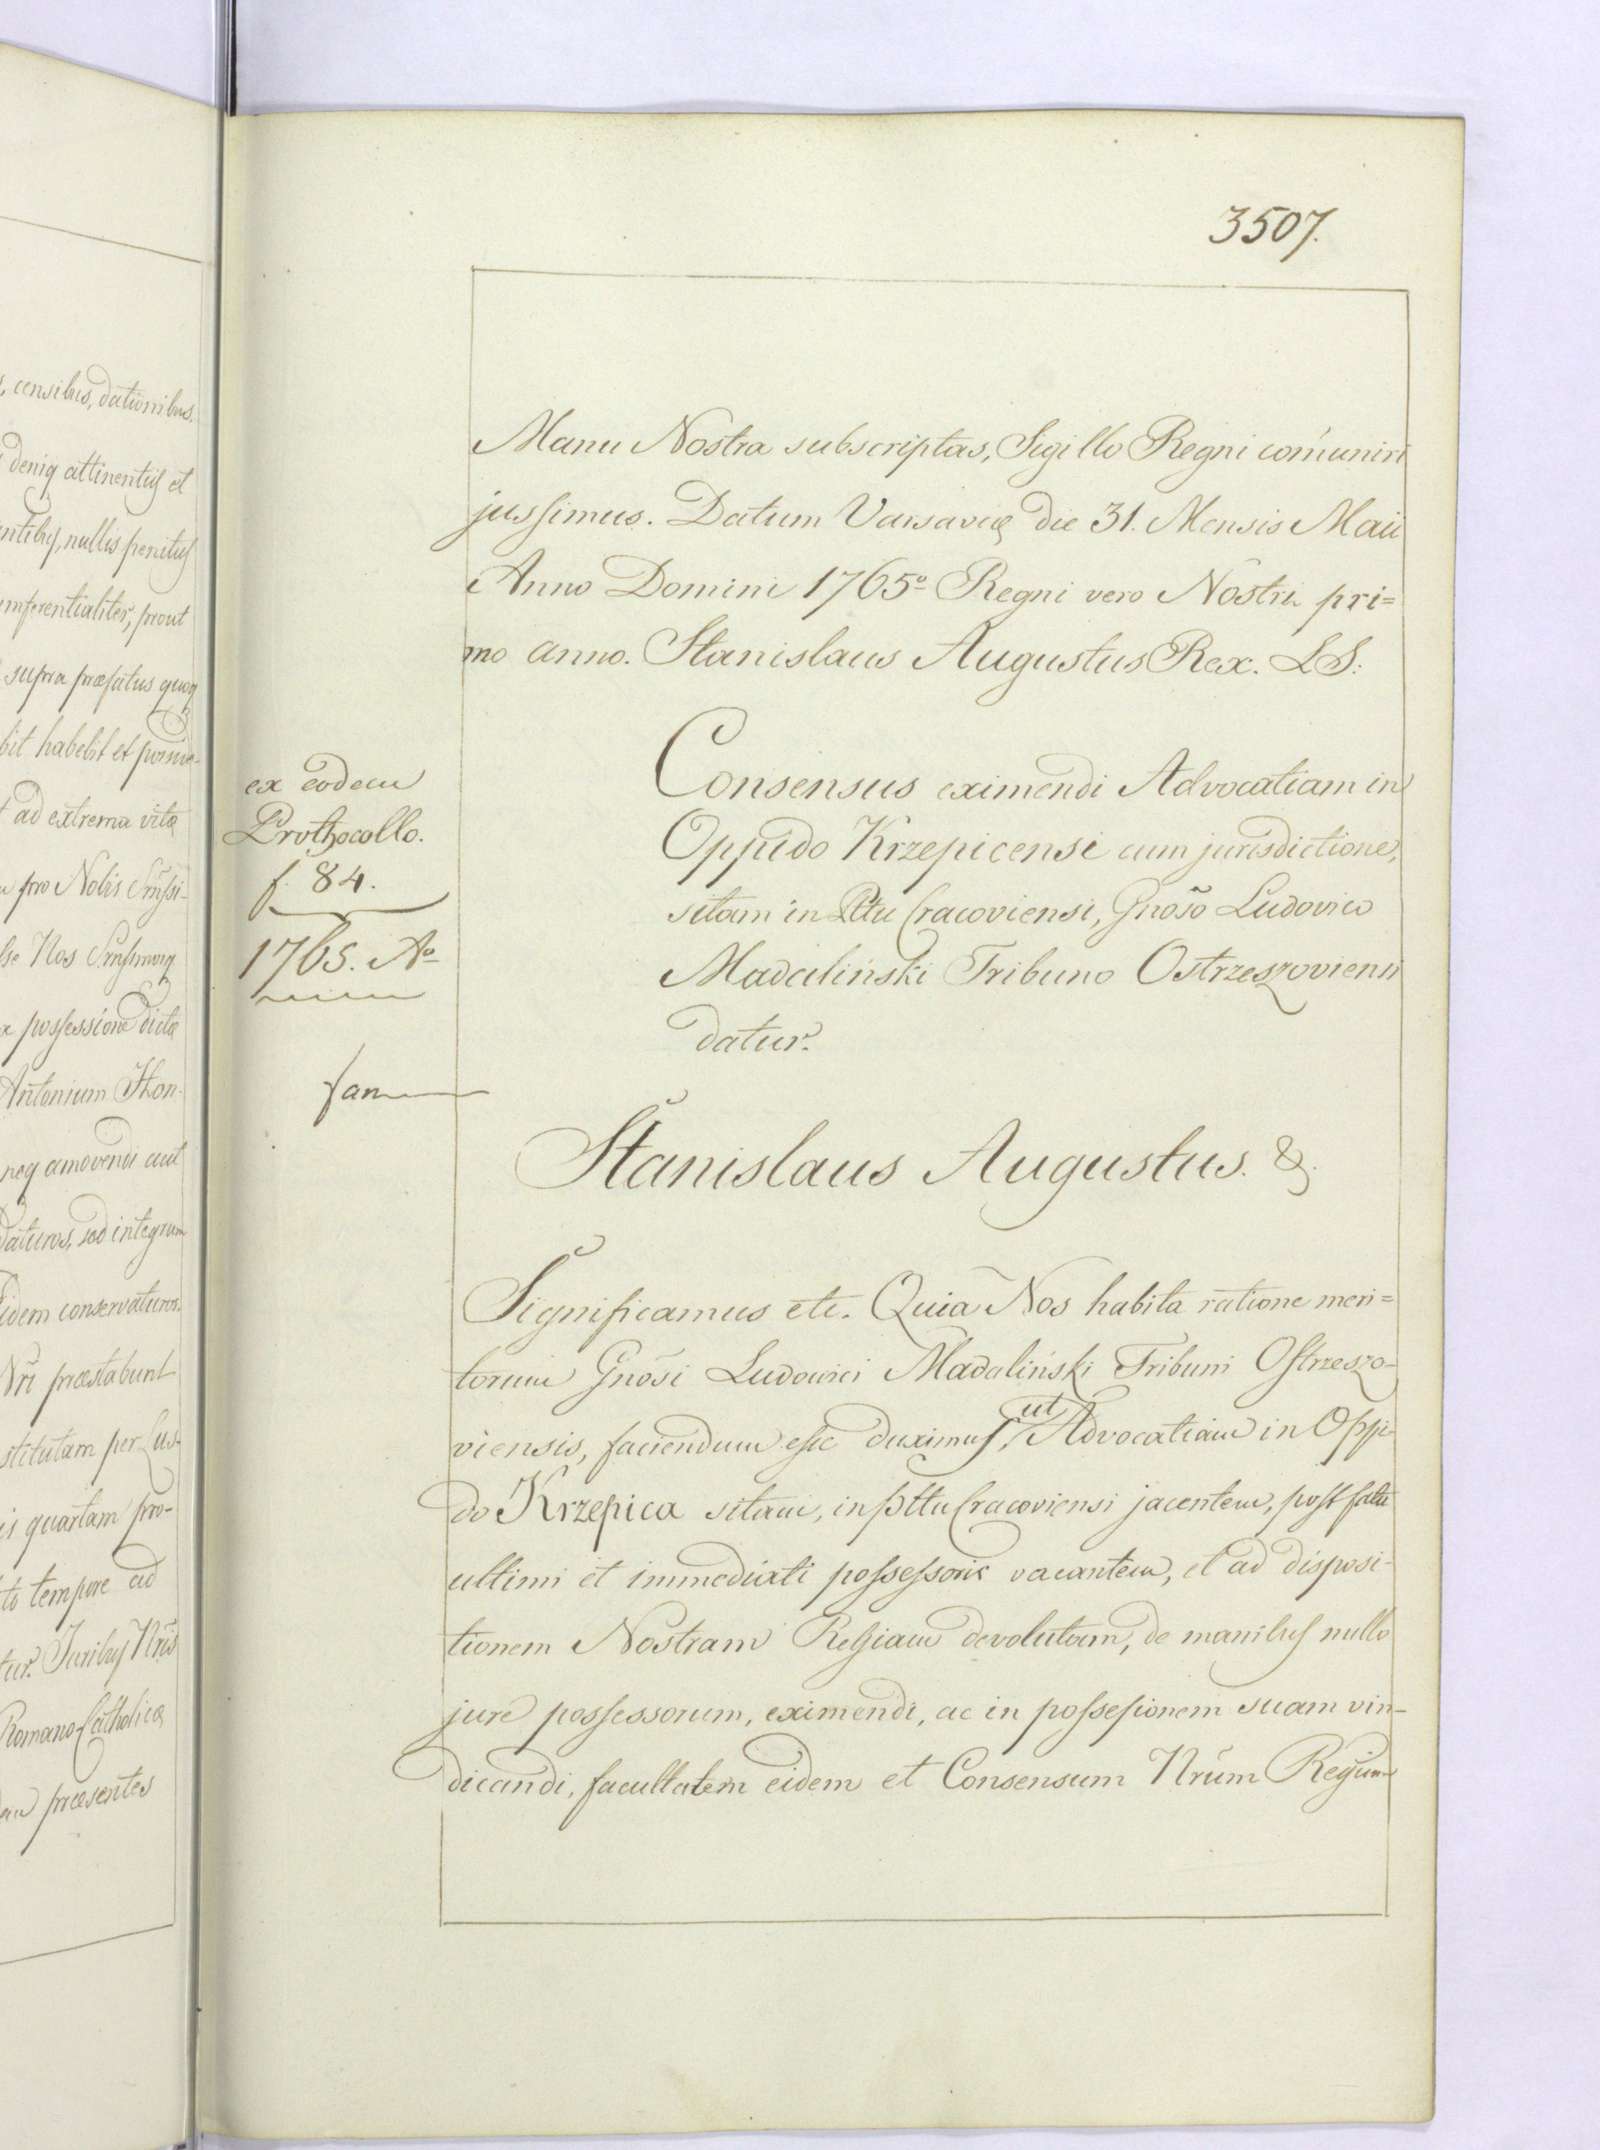 3507.
Manu Nostra subscriptas, Sigillo Regni com̄uniri
jussimus. Datum Varsaviæ die 31. Mensis Maii
Anno Domini 1765º Regni vero Nostri pri=
mo anno. Stanislaus Augustus Rex. LS:
ex eodem
Prothocollo.
f. 84.
1765. Aº
Consensus eximendi Advocatiam in
Oppido Krzepicensi cum jurisdictione,
sitam in Pttu Cracoviensi, Gnoso Ludovico
Madaliński Tribuno Ostrzeszoviensi
datur.
Stanislaus Augustus. &.
Significamus etc. Quia Nos habita ratione meri=
torum Gnosi Ludovici Madaliński Tribuni Ostrzeszo-
viensis, faciendum esse duximus, ut Advocatiam in Oppi-
do Krzepica sitam, in Pttu Cracoviensi jacentem, post fata
ultimi et immediati possessoris vacantem, et ad disposi-
tionem Nostram Regiam devolutam, de manibus nullo
jure possessorum, eximendi, ac in possesionem suam vin-
dicandi, facultatem eidem et Consensum Nrum Regium
s, censibus, dationibus.
deniq attinentiis et
ntibus, nullis penitus
prout
supra præfatus quoq
bit habebit et
ad extrema vitæ
pro Nobis
Nos
possessione dictæ
Antonium
neq amovendi aut
daturos, sed integrum
Eidem conservaturos.
Nri præstabunt
stitutam per Lus-
is quartam pro-
to tempore ad
tur. Juribus Nris
Romano Catholicæ
præsentes